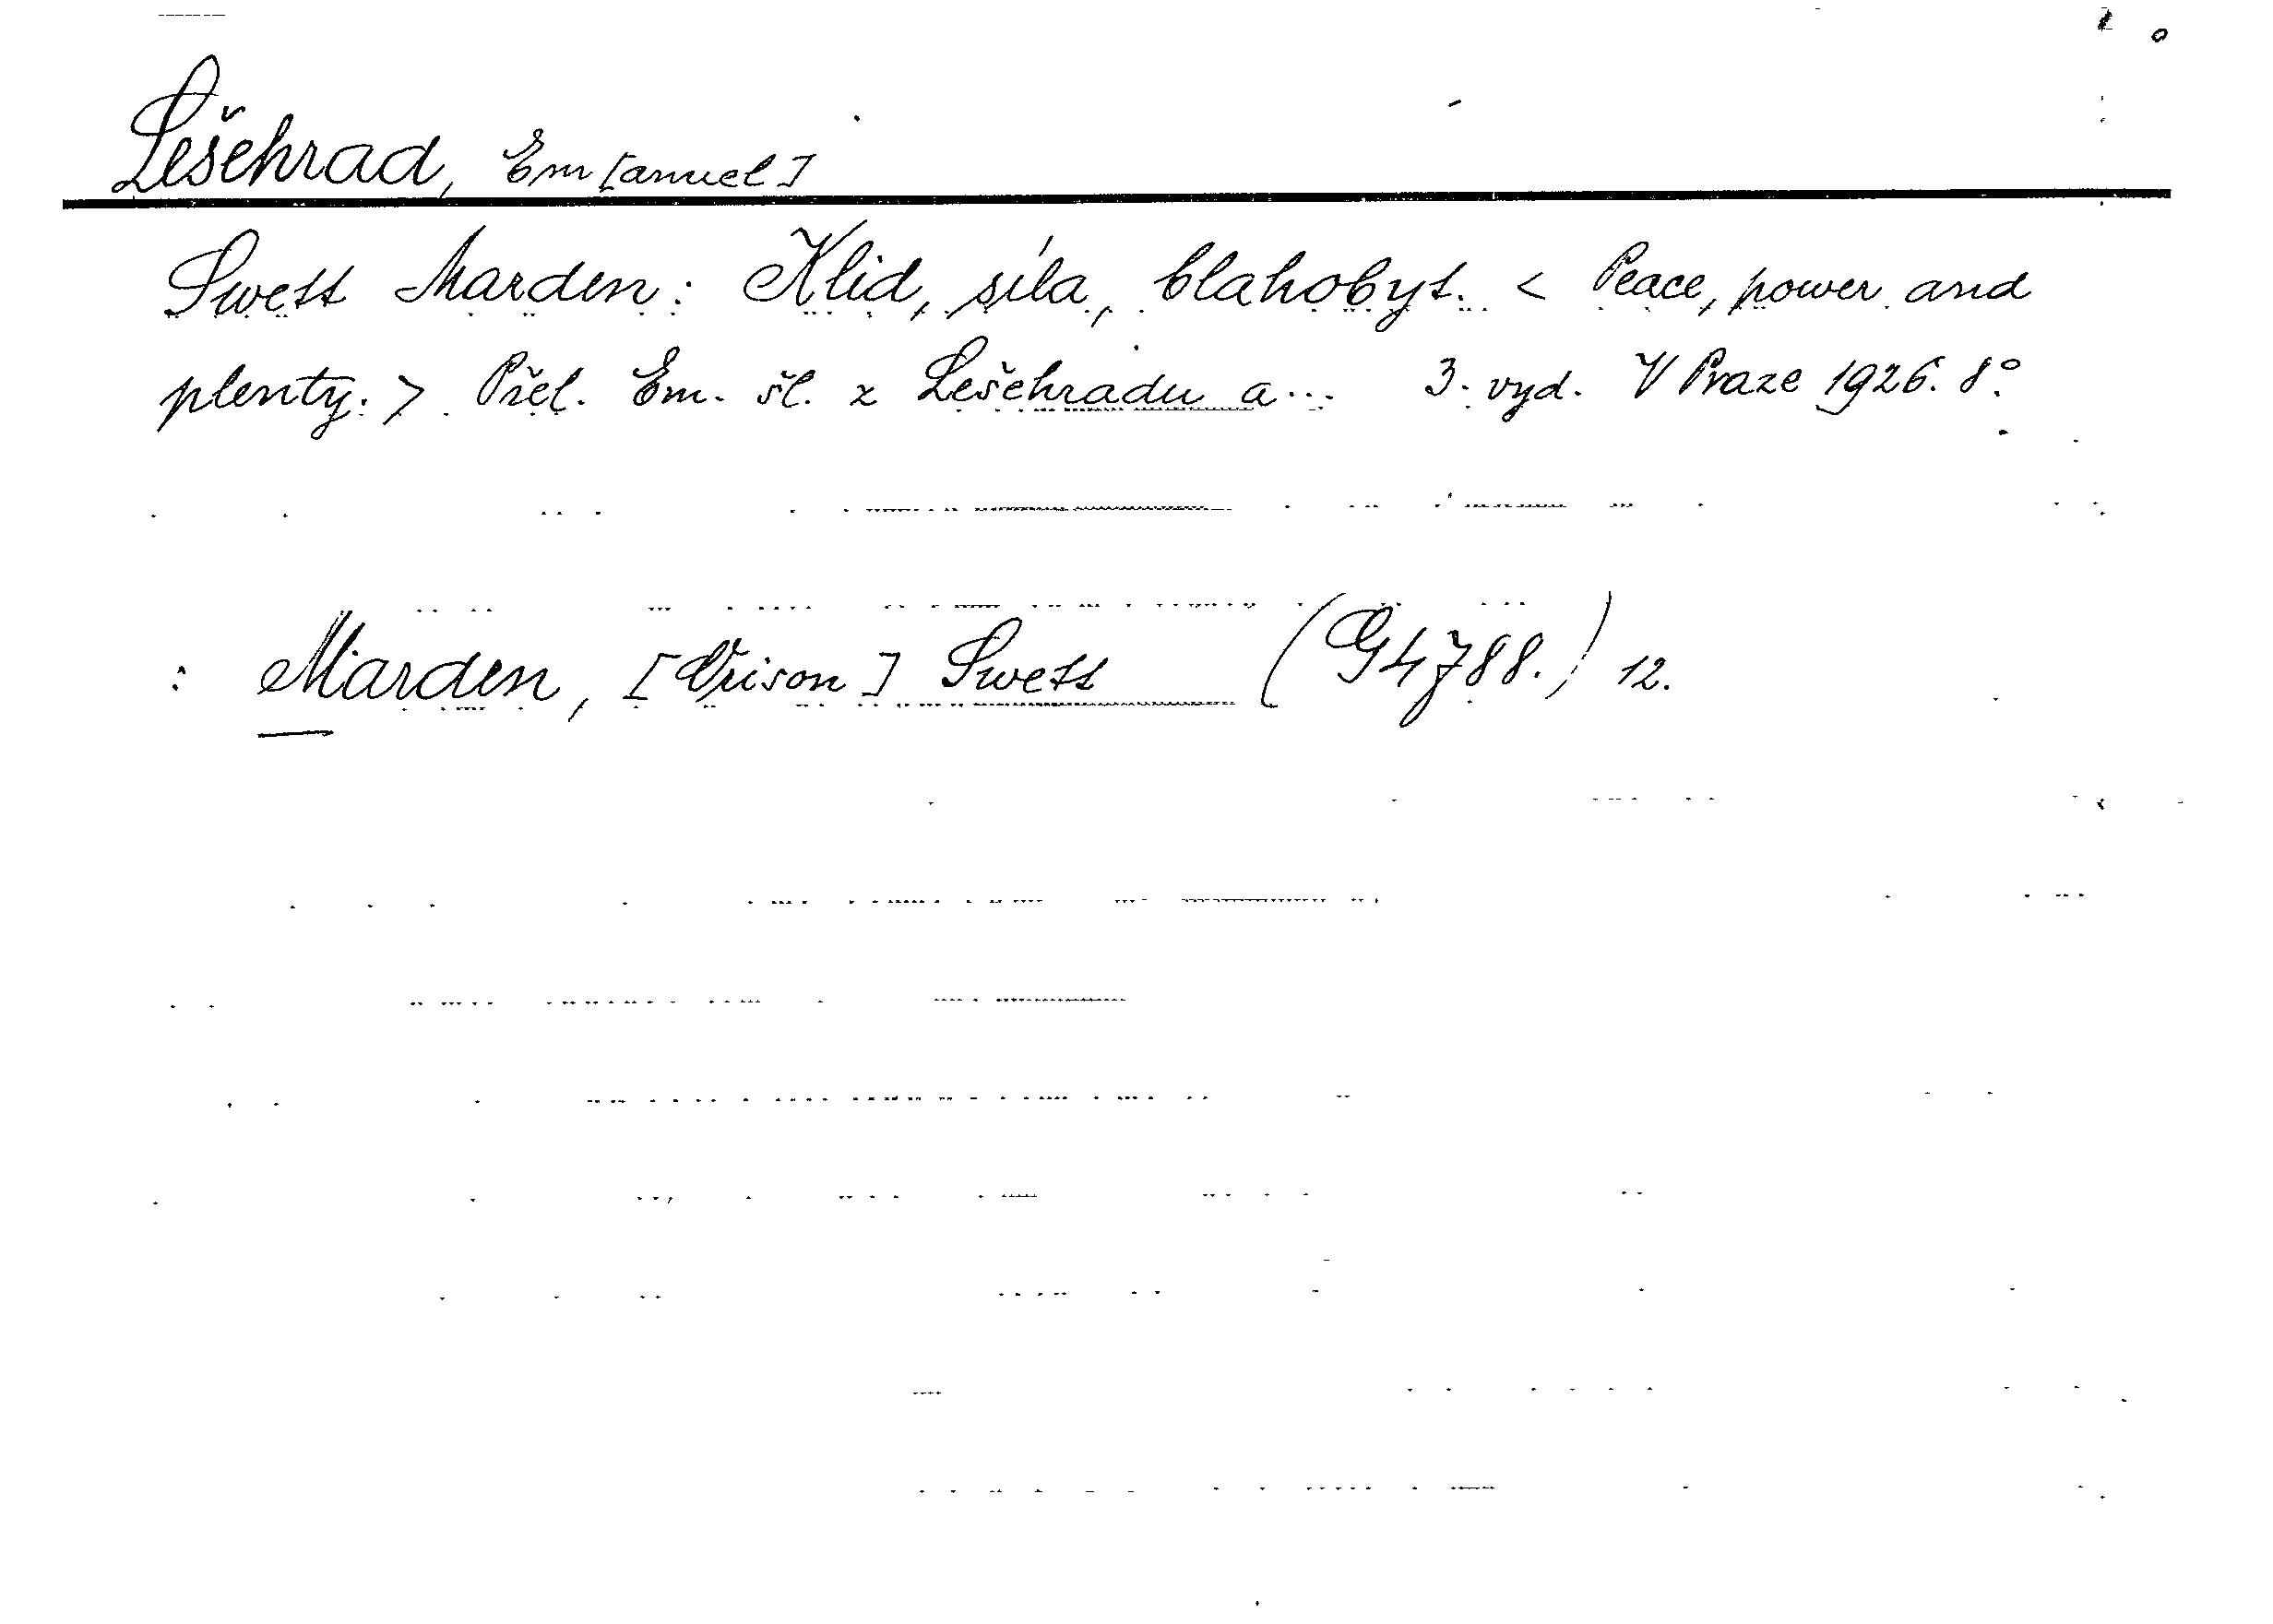 Lešehrad, Em[anuel]
Swett Marden: Klid, síla, blahobyt. < Peace, power and
plenty. > Přel. Em. šl. z Lešehradu a... 3. vyd. V Praze 1926. 8°.
: Marden, [Orison] Swett (G 4788.) 12.